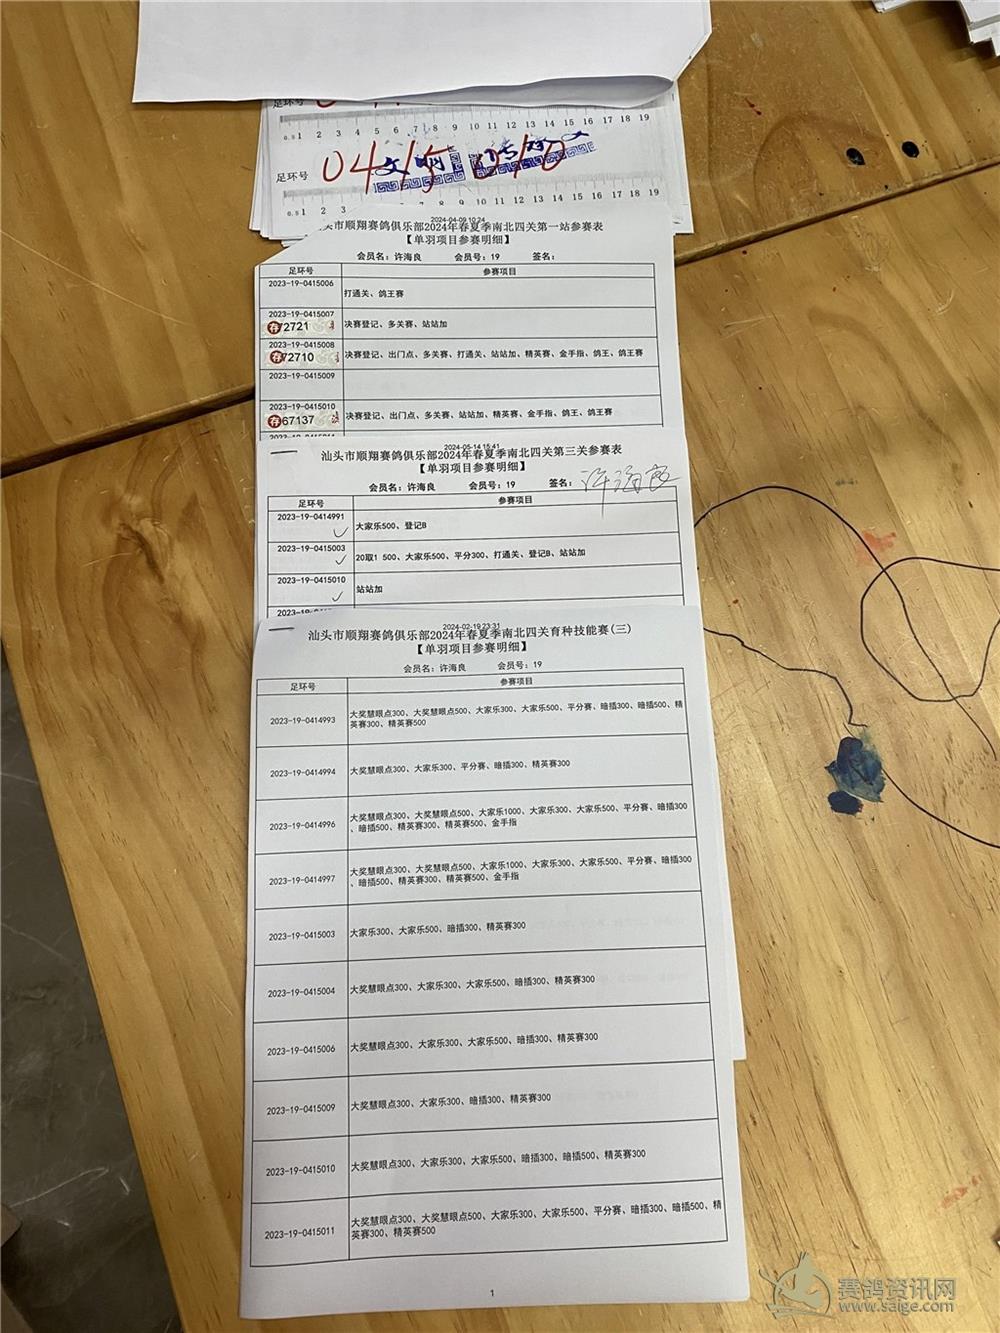 足环号
0.5 1 2 3 4 5 6 7 8 9 10 11 12 13 14 15 16 17 18 19
足环号 0415010
文明
0.5 1 2 3 7 8 9 10 11 12 13 14 15 16 17 18 19
2024-04-09 10:24
汕头市顺翔赛鸽俱乐部2024年春夏季南北四关第一站参赛表
【单羽项目参赛明细】
会员名：许海良 会员号：19 签名：
足环号 参赛项目
2023-19-0415006 打通关、鸽王赛
2023-19-0415007 决赛登记、多关赛、站站加
荐72721
2023-19-0415008 决赛登记、出门点、多关赛、打通关、站站加、精英赛、金手指、鸽王、鸽王赛
荐72710
2023-19-0415009
2023-19-0415010 决赛登记、出门点、多关赛、站站加、精英赛、金手指、鸽王、鸽王赛
荐67137
2023-19-0415011
2024-05-14 15:41
汕头市顺翔赛鸽俱乐部2024年春夏季南北四关第三关参赛表
【单羽项目参赛明细】
会员名：许海良 会员号：19 签名：许海良
足环号 参赛项目
2023-19-0414991 大家乐500、登记B
2023-19-0415003 20取1 500、大家乐500、平分300、打通关、登记B、站站加
2023-19-0415010 站站加
2023-19-041
2024-02-19 23:31
汕头市顺翔赛鸽俱乐部2024年春夏季南北四关育种技能赛(三)
【单羽项目参赛明细】
会员名：许海良 会员号：19
足环号 参赛项目
2023-19-0414993 大奖慧眼点300、大奖慧眼点500、大家乐300、大家乐500、平分赛、暗插300、暗插500、精
英赛300、精英赛500
2023-19-0414994 大奖慧眼点300、大家乐300、平分赛、暗插300、精英赛300
2023-19-0414996 大奖慧眼点300、大奖慧眼点500、大家乐1000、大家乐300、大家乐500、平分赛、暗插300
、暗插500、精英赛300、精英赛500、金手指
2023-19-0414997 大奖慧眼点300、大奖慧眼点500、大家乐1000、大家乐300、大家乐500、平分赛、暗插300
、暗插500、精英赛300、精英赛500、金手指
2023-19-0415003 大家乐300、大家乐500、暗插300、精英赛300
2023-19-0415004 大奖慧眼点300、大家乐300、大家乐500、暗插300、精英赛300
2023-19-0415006 大奖慧眼点300、大家乐300、大家乐500、暗插300、精英赛300
2023-19-0415009 大奖慧眼点300、大家乐300、暗插300、精英赛300
2023-19-0415010 大奖慧眼点300、大家乐300、大家乐500、暗插300、暗插500、精英赛300
2023-19-0415011 大奖慧眼点300、大奖慧眼点500、大家乐300、大家乐500、平分赛、暗插300、暗插500、精
英赛300、精英赛500
1
赛鸽资讯网
www.saige.com